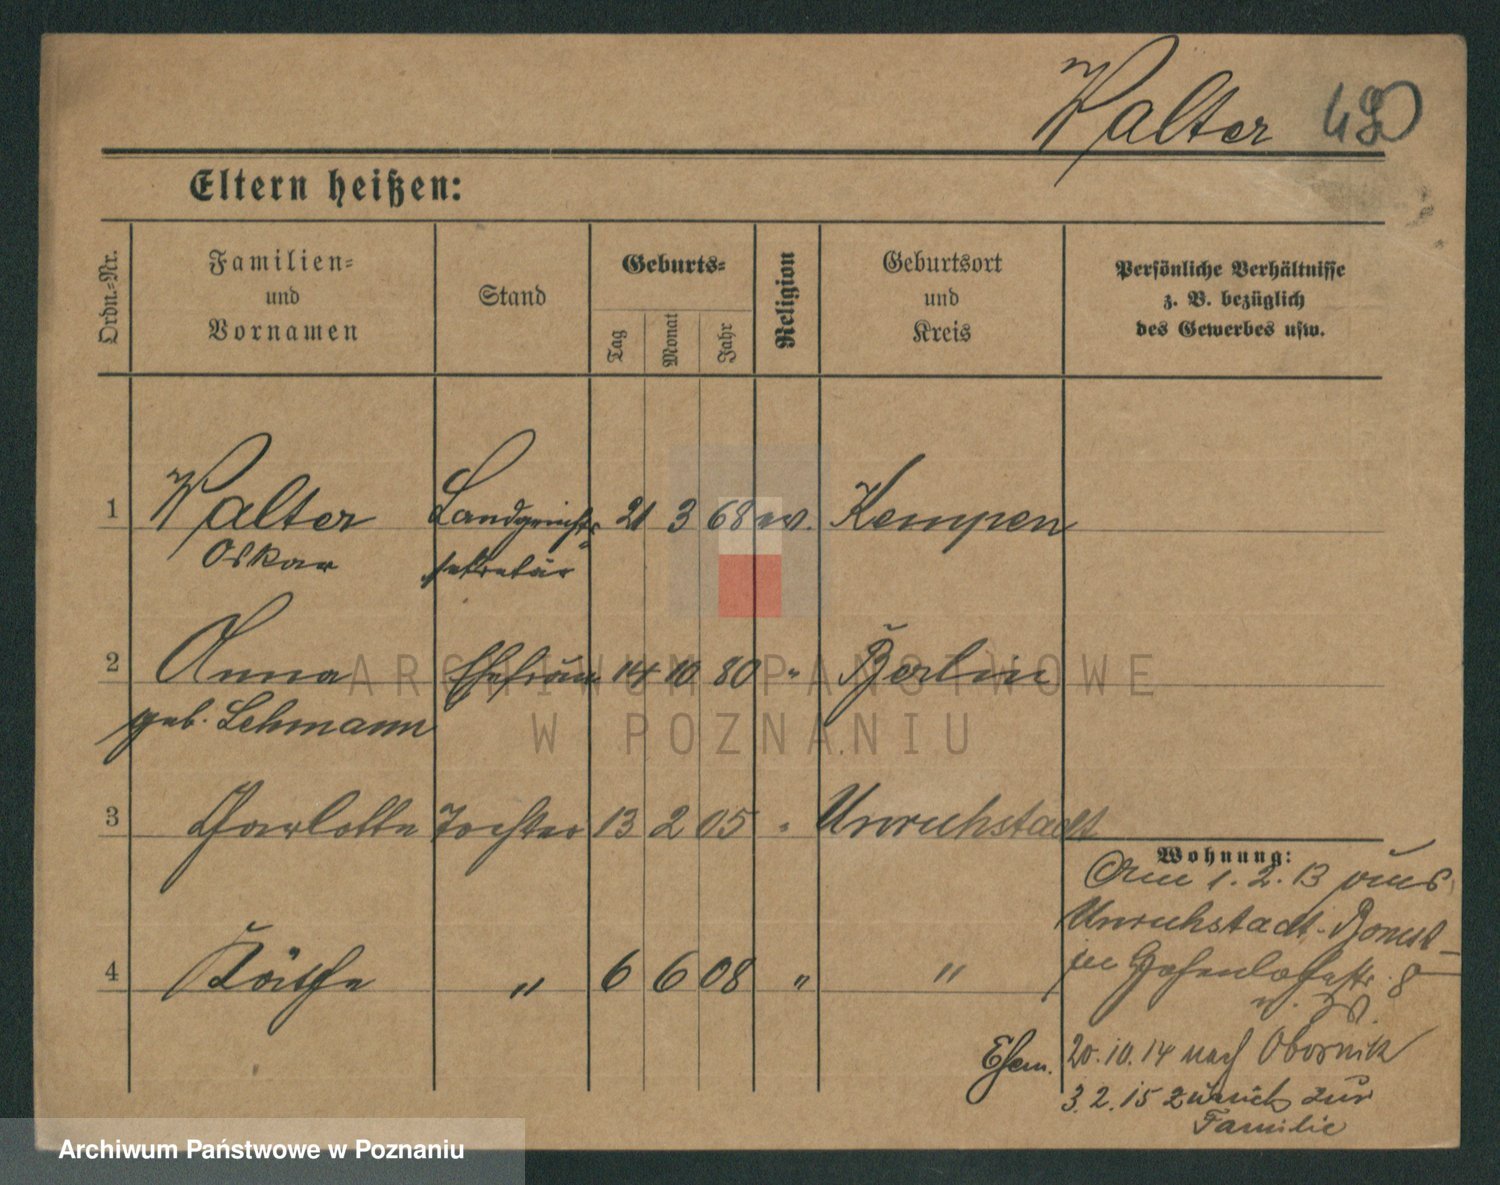 Walter 490
Eltern heißen:
Ordn.-Nr.
Familien-
und
Vornamen
Stand
Geburts-
Tag
Monat
Jahr
Religion
Geburtsort
und
Kreis
Persönliche Verhältnisse
z. B. bezüglich
des Gewerbes usw.
1 Walter Landgerichts- 21 3 68 ev. Kempen
Oskar sekretär
2 Anna Ehefrau 14 10 80 " Berlin
geb. Lehmann
3 Charlotte Tochter 13 2 05 " Unruhstadt
Wohnung:
Am 1. 2. 13 aus
Unruhstadt-Bomst
in Hohenlohestr. 8
4 Käthe " 6 6 08 " "
Ehem. 20.10.14 nach Obornik
3.2.15 zurück zur
Familie
ARCHIWUM PAŃSTWOWE
W POZNANIU
Archiwum Państwowe w Poznaniu